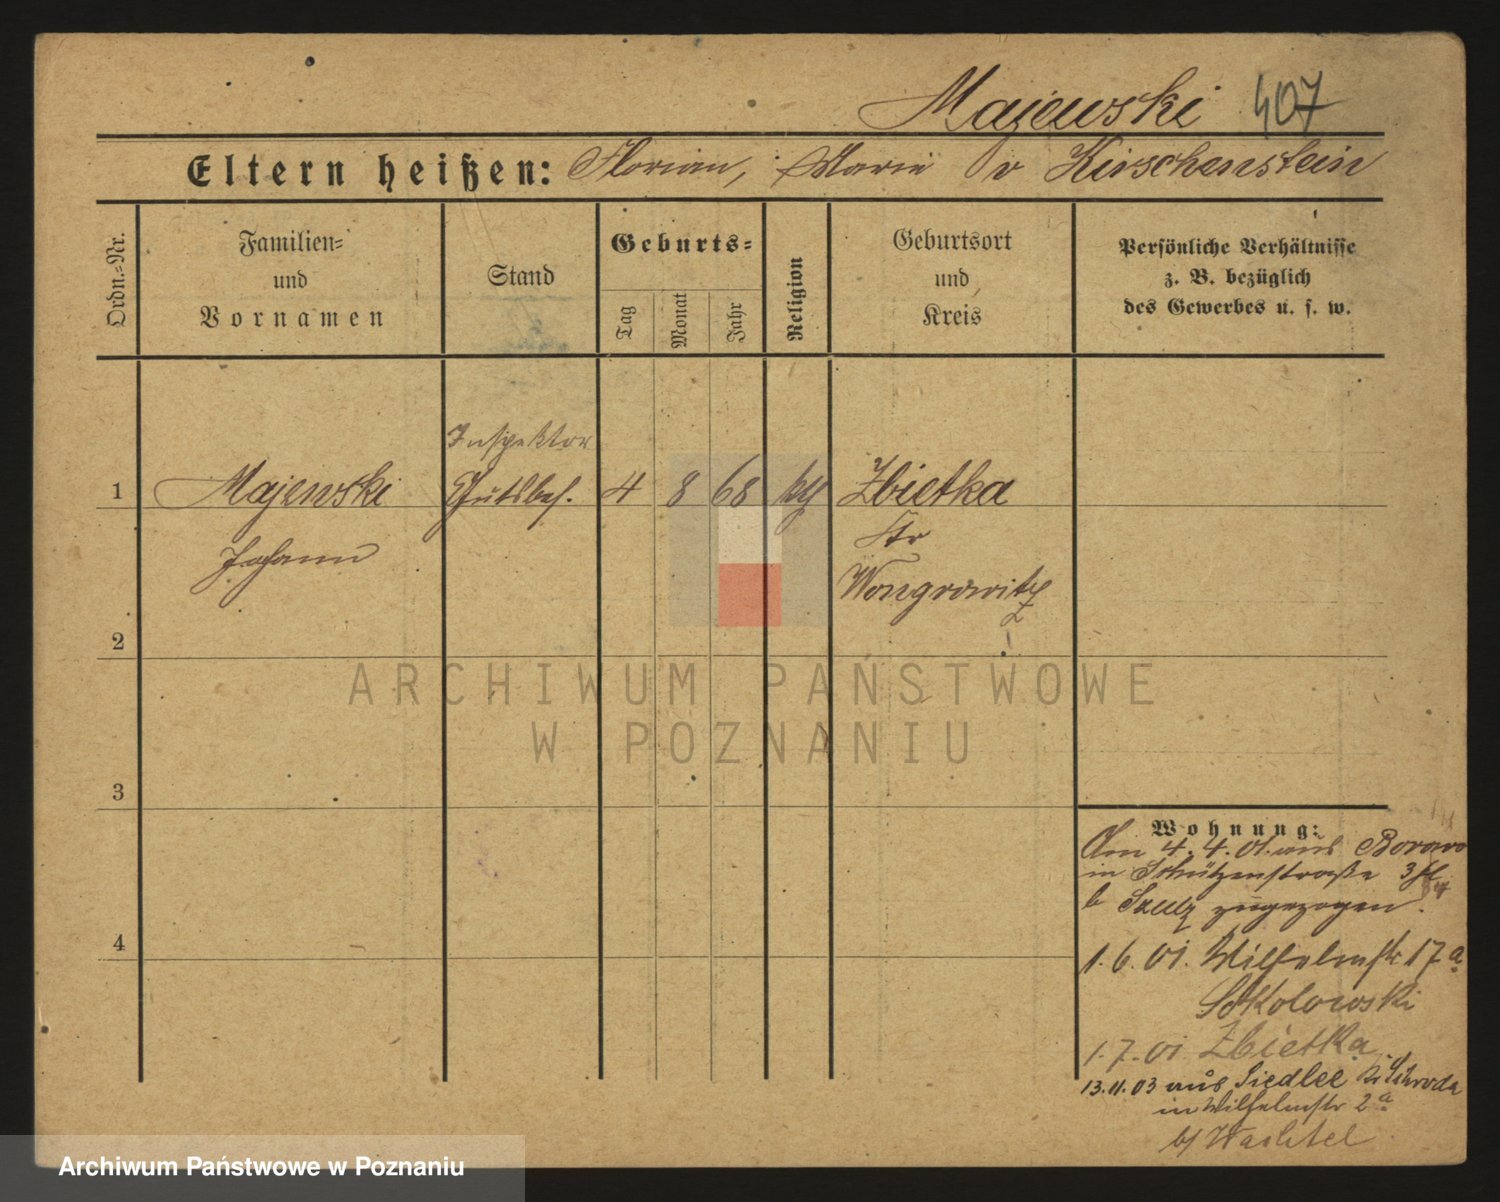 Majewski 407
Eltern heißen: Florian, Marie v Kirschenstein
Ordn.=Nr.
Familien=
und
Vornamen
Stand
Geburts=
Tag
Monat
Jahr
Religion
Geburtsort
und
Kreis
Persönliche Verhältnisse
z. B. bezüglich
des Gewerbes u. s. w.
Inspektor
1 Majewski Gutsbes. 4 8 68 Zbietka
Johann
Kr
Wongrowitz
2
3
4
Wohnung:
Am 4.4.01. aus Borowo
in Schützenstraße 3
b Szulz zugezogen.
1.6.01. Wilhelmstr 17a
Sokolowski
1.7.01 Zbietka
13.11.03 aus Siedlec Kr Schroda
in Wilhelmstr 2a
b/ Wachtel
ARCHIWUM PAŃSTWOWE
W POZNANIU
Archiwum Państwowe w Poznaniu